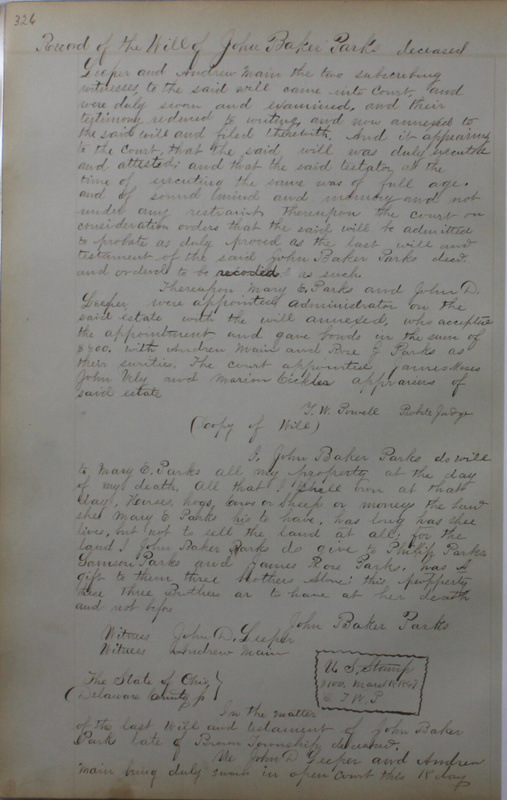 326
Record of the Will of John Baker Parks deceased
Leeper and Andrew Main the two subscribing
witnesses to the said will came into Court, and
were duly sworn and examined, and their
testimony reduced to writing, and now annexed to
the said will and filed therewith. And it appearing
to the court, that the said will was duly executed
and attested; and that the said testator at the
time of executing the same was of full age.
and of sound mind and memory and not
under any restraint, thereupon the court on
consideration orders that the said will be admitted
to probate as duly proved as the last will and
testament of the said John Baker Parks decd.
and ordered to be recorded as such.
Thereupon Mary E. Parks and John D.
Leeper were appointed administrator on the
said estate with the will annexed, who accepted
the appointment and gave bonds in the sum of
$700. with Andrew Main and Parks as
their surities. The court appointed James Moses
John and Marion appraisers of
said estate
T. W. Powell Probate Judge
(Copy of Will)
I, John Baker Parks do will
to Mary E. Parks all my property at the day
of my death. All that I shall own at that
day, Horses, hogs, cows or sheep or moneys the land
she Mary E Parks is to have, was long has shee
lives, but not to sell the land at all; for the
land I John Baker Parks do give to Philip Parks
Samson Parks and James Rose Parks. has A
gift to them three brothers alone; this property
three Brothers ar to have at her death
and not before
John Baker Parks
Witness John D. Leeper
Witness Andrew Main
U. S. Stamp
T W. P
The State of Ohio }
Delaware County }
In the matter
of the last Will and testament of John Baker
Park late of Brown Township deceased.
We John D Leeper and Andrew
Main being duly sworn in open court this 18 day